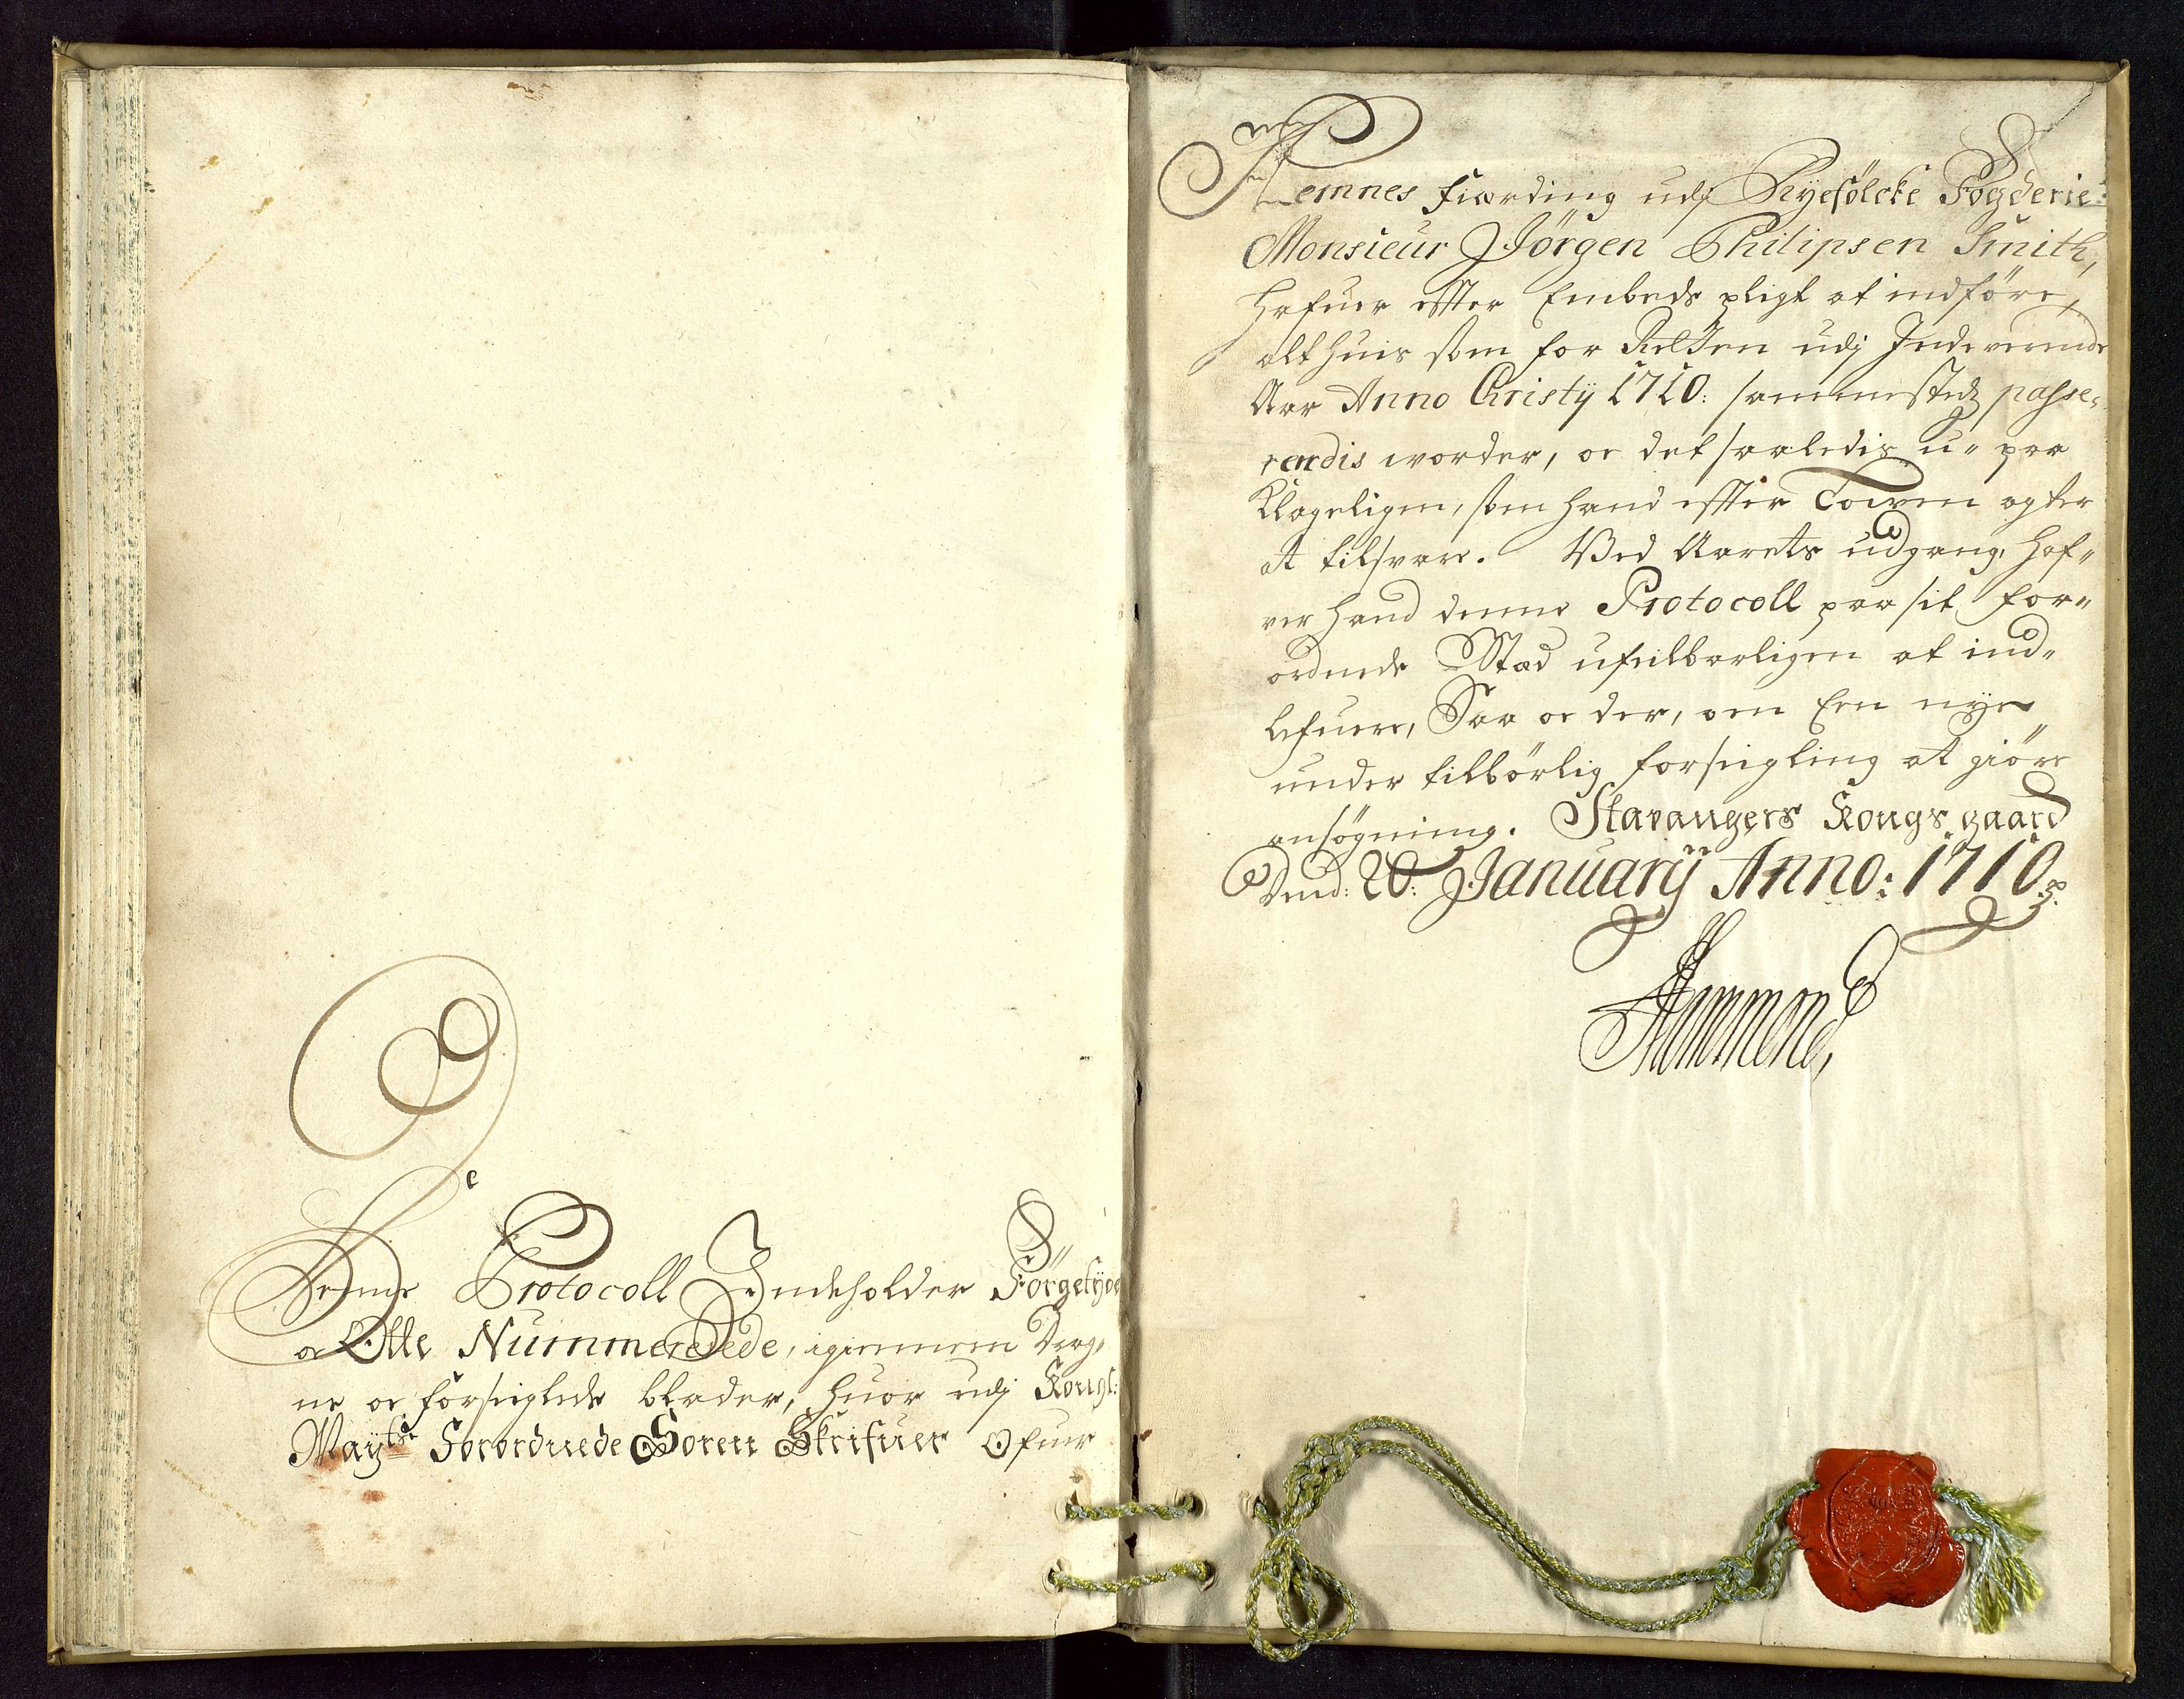 Denne Protocoll Indeholder Förgetyve
oc Otte Nummererede, igiennem Drag„
ne oc forseiglede blader, huor udj Kongl:
Mayts: Forordnede Soren Skrifuer Ofuer
Hemnes Fiærding udj Ryefölcke Fogderie:
Monsieur Jörgen Philipsen Smith,
hafuer effter Embeds pligt at indföre,
alt huis som for Retten udj Indeverende
Aar Anno Christij 1710: sammesteds passe„
rendis worder, oc det saaledis u„ paa
Klageligen, som hand effter Lowen agter
at tilsvare. Ved Aarets udgang, haf„
ver hand denne Protocoll paa sit for„
ordnede Stæd ufeilbarligen at ind„
lefuere, Saa oc der, om Een nye
under tilbörlig forseigling at giöre
ansögning. Stavangers Kongsgaard
Dend: 20: Januarij Anno: 1710
Hammond,